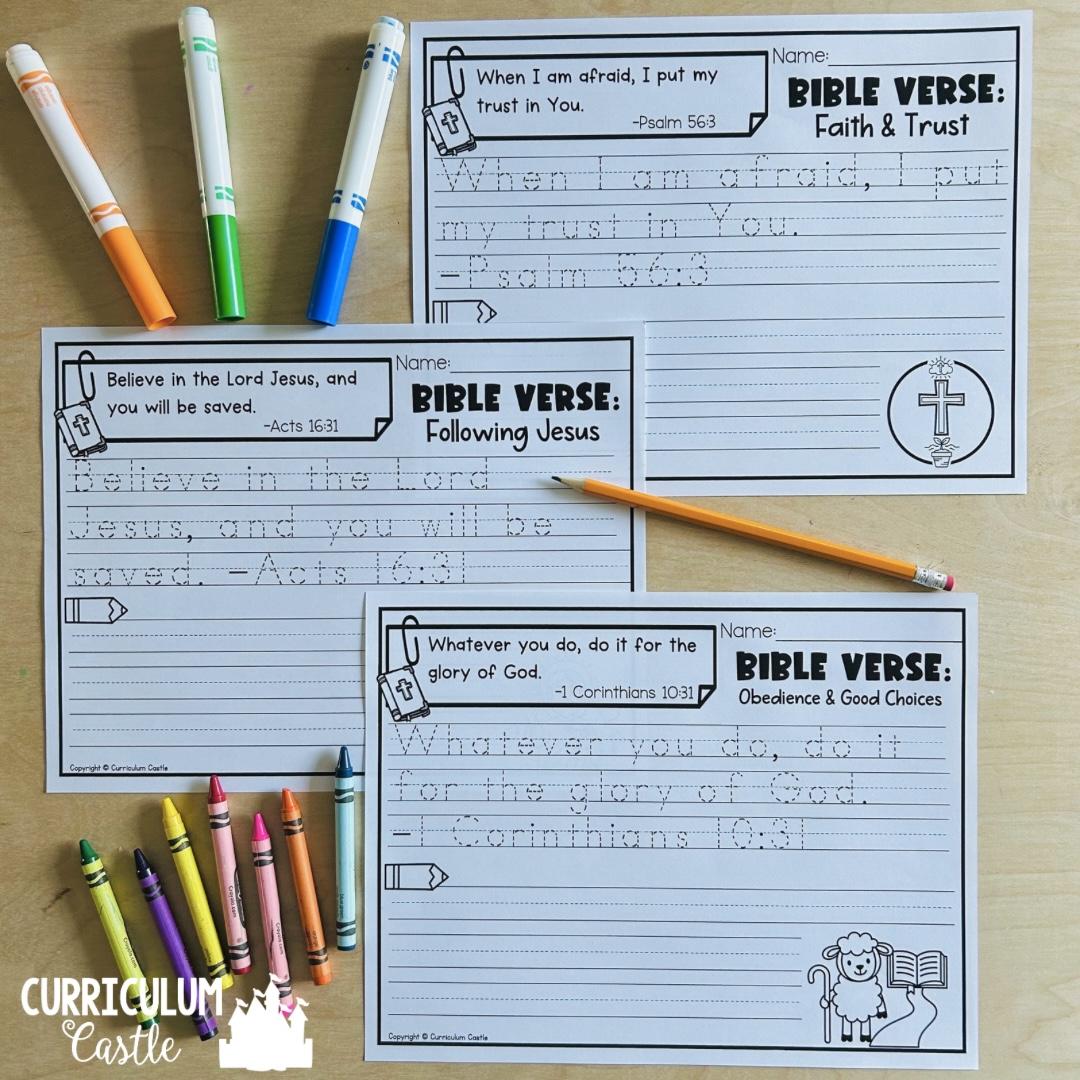 When I am afraid, I put my
trust in You.
-Psalm 56:3
Name:
BIBLE VERSE:
Faith & Trust
When I am afraid, I put
my trust in You.
-Psalm 56:3
Believe in the Lord Jesus, and
you will be saved.
-Acts 16:31
Name:
BIBLE VERSE:
Following Jesus
Believe in the Lord
Jesus, and you will be
saved. -Acts 16:31
Copyright © Curriculum Castle
Whatever you do, do it for the
glory of God.
-1 Corinthians 10:31
Name:
BIBLE VERSE:
Obedience & Good Choices
Whatever you do, do it
for the glory of God.
-1 Corinthians 10:31
Copyright © Curriculum Castle
CURRICULUM
Castle